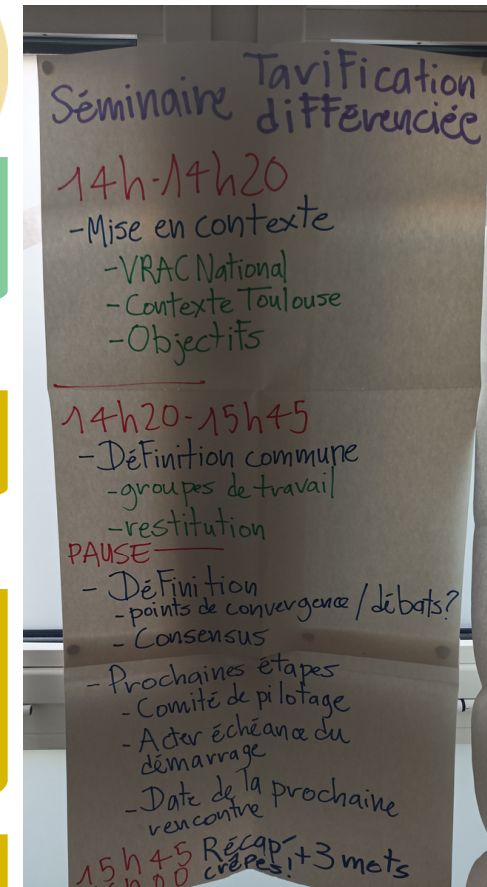 Séminaire Tarification
différenciée
14h-14h20
-Mise en contexte
-VRAC National
-Contexte Toulouse
-Objectifs
14h20-15h45
-Définition commune
-groupes de travail
-restitution
PAUSE
- Définition
-points de convergence / débats?
- Consensus
- Prochaines étapes
- Comité de pilotage
- Acter échéance du
démarrage
- Date de la prochaine
rencontre
15h45 Récap + 3 mots
crêpes!